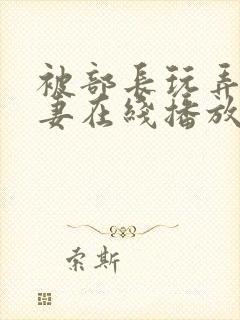 被部长玩弄
妻在线播放
索斯